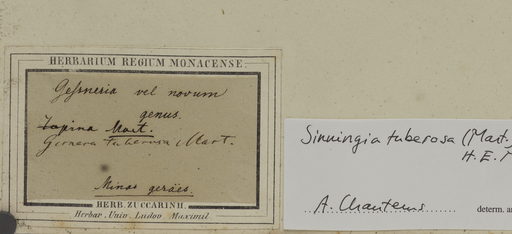 HERBARIUM REGIUM MONACENSE.
Gesneria vel novum
genus.
Tapina Mart.
Gesnera tuberosa Mart.
Minas geräes.
HERB. ZUCCARINII.
Herbar. Univ. Ludov. Maximil.
Sinningia tuberosa (Mart.)
H.E.
A. Chautems
determ.